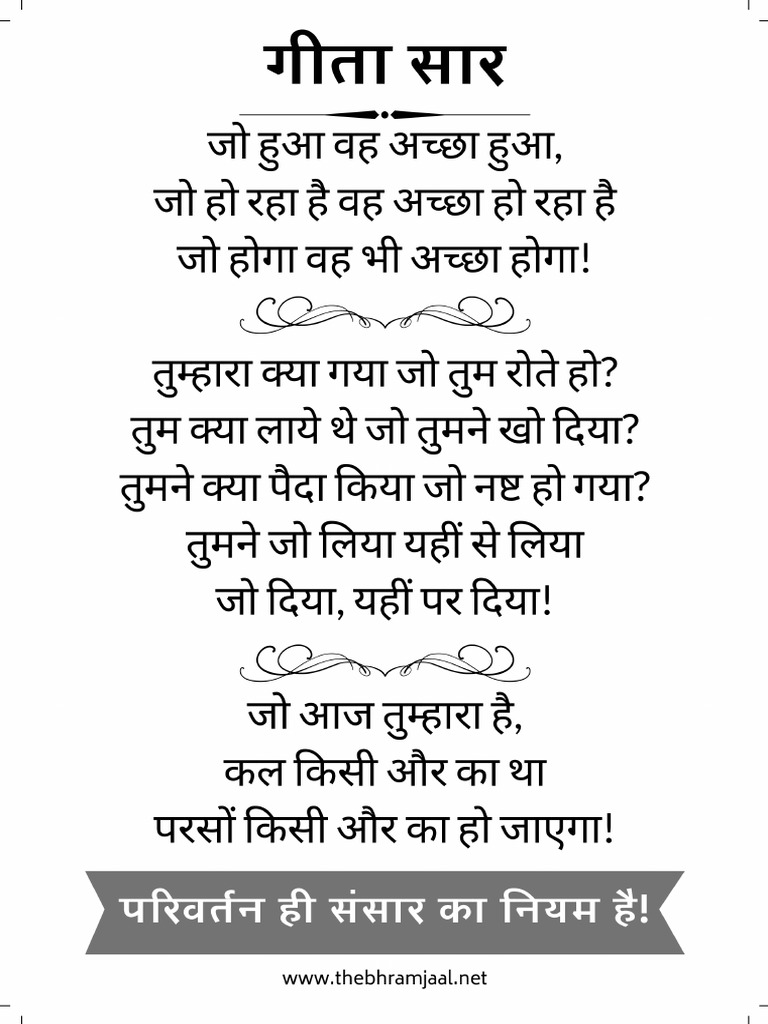 गीता सार
जो हुआ वह अच्छा हुआ,
जो हो रहा है वह अच्छा हो रहा है
जो होगा वह भी अच्छा होगा!
तुम्हारा क्या गया जो तुम रोते हो?
तुम क्या लाये थे जो तुमने खो दिया?
तुमने क्या पैदा किया जो नष्ट हो गया?
तुमने जो लिया यहीं से लिया
जो दिया, यहीं पर दिया!
जो आज तुम्हारा है,
कल किसी और का था
परसों किसी और का हो जाएगा!
परिवर्तन ही संसार का नियम है!
www.thebhramjaal.net